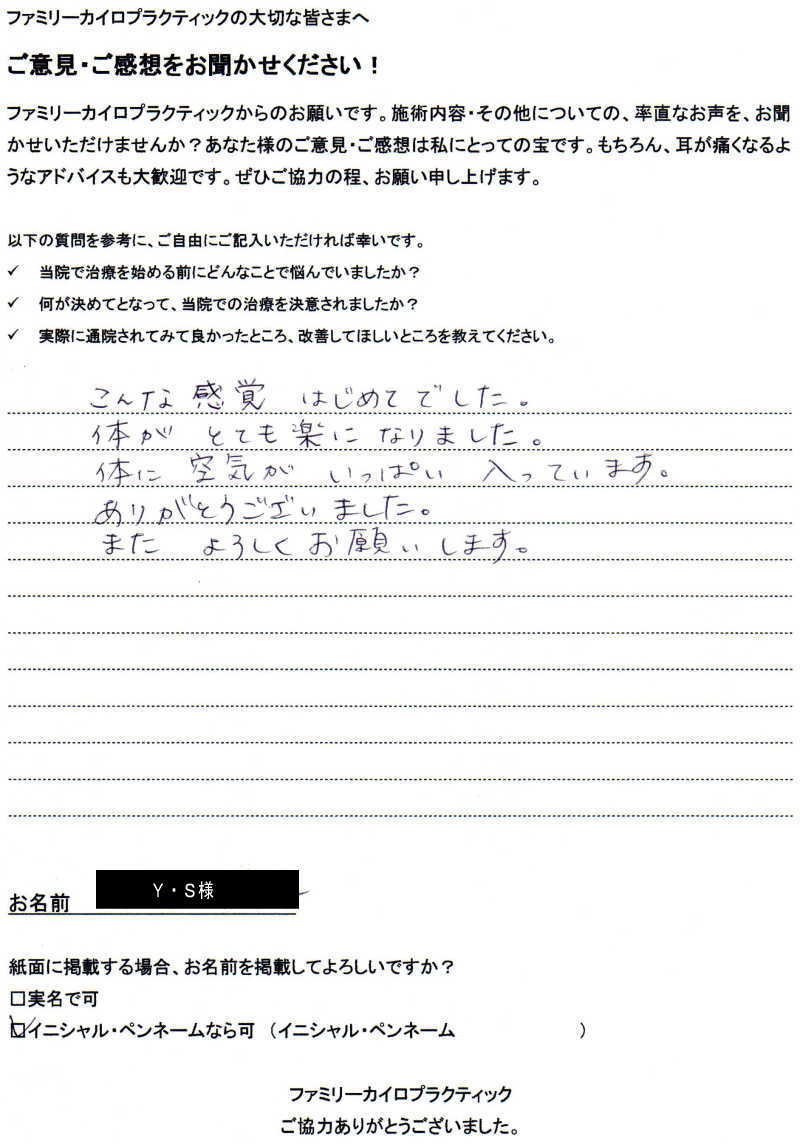 ファミリーカイロプラクティックの大切な皆さまへ
ご意見・ご感想をお聞かせください！
ファミリーカイロプラクティックからのお願いです。施術内容・その他についての、率直なお声を、お聞
かせいただけませんか？あなた様のご意見・ご感想は私にとっての宝です。もちろん、耳が痛くなるよ
うなアドバイスも大歓迎です。ぜひご協力の程、お願い申し上げます。
以下の質問を参考に、ご自由にご記入いただければ幸いです。
✓ 当院で治療を始める前にどんなことで悩んでいましたか？
✓ 何が決めてとなって、当院での治療を決意されましたか？
✓ 実際に通院されてみて良かったところ、改善してほしいところを教えてください。
こんな感覚 はじめてでした。
体が とても楽に なりました。
体に 空気が いっぱい 入っています。
ありがとうございました。
また よろしくお願いします。
お名前 Y・S様
紙面に掲載する場合、お名前を掲載してよろしいですか？
□実名で可
☑イニシャル・ペンネームなら可 （イニシャル・ペンネーム ）
ファミリーカイロプラクティック
ご協力ありがとうございました。